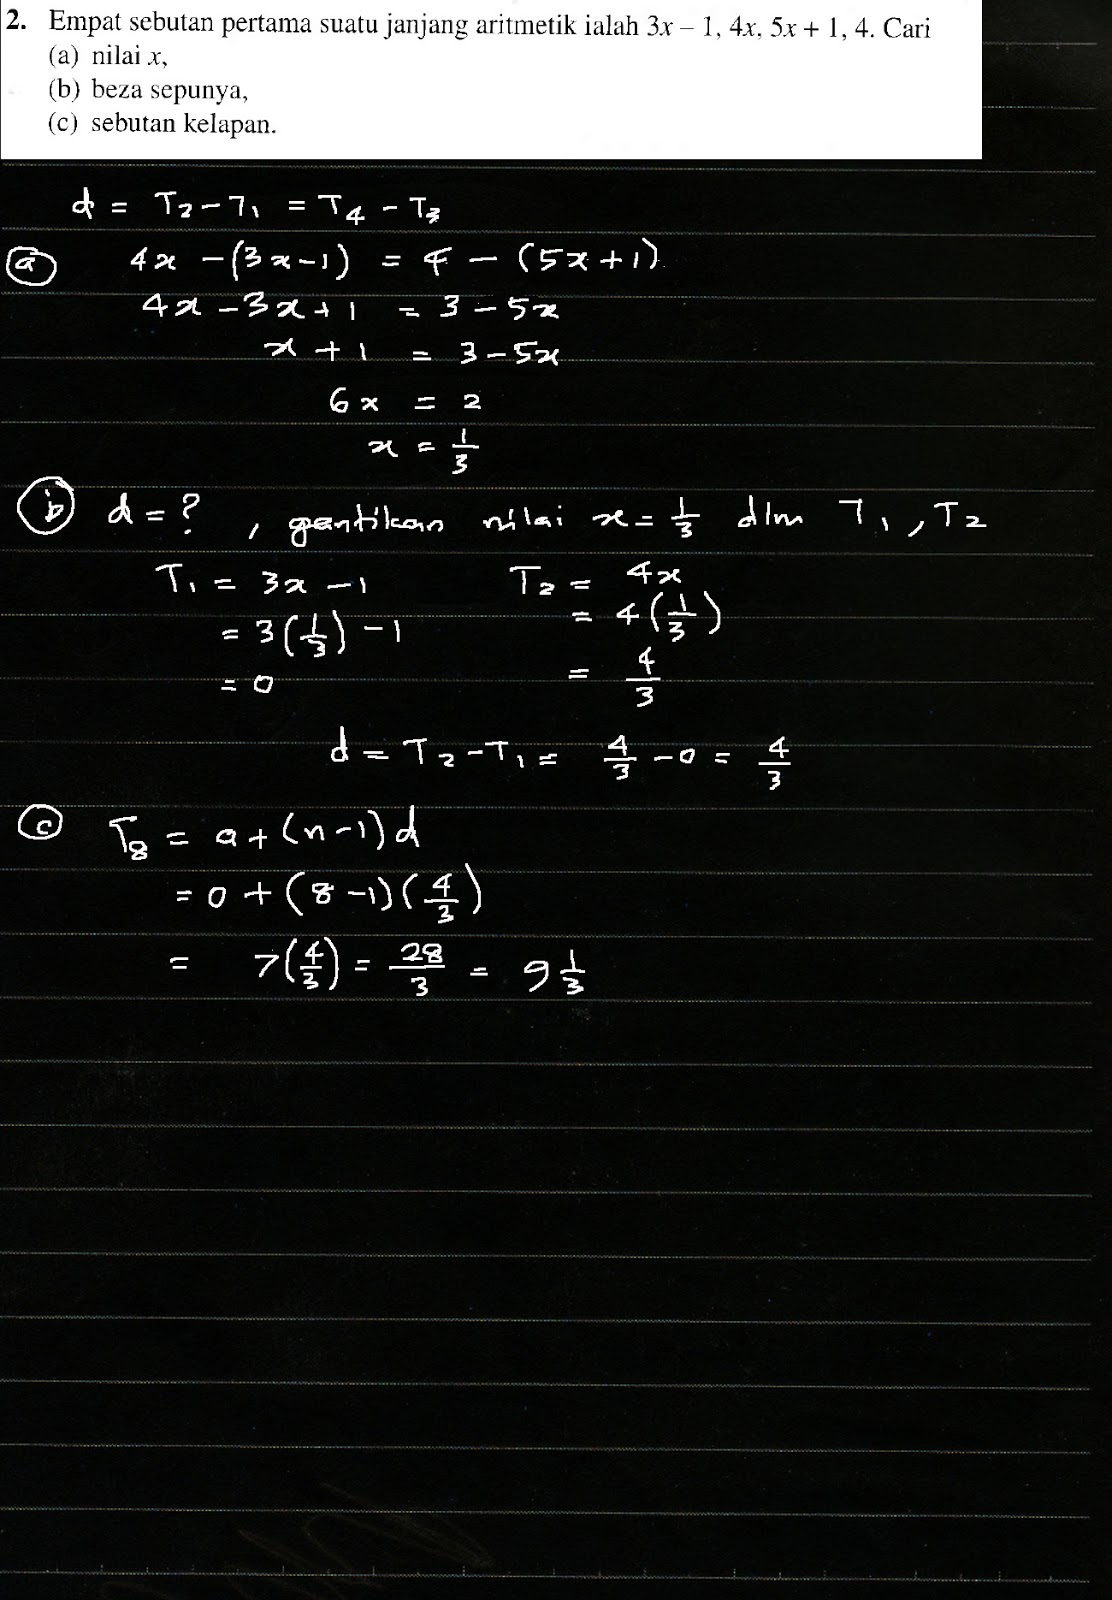 2. Empat sebutan pertama suatu janjang aritmetik ialah 3x – 1, 4x, 5x + 1, 4. Cari
(a) nilai x,
(b) beza sepunya,
(c) sebutan kelapan.
d = T₂ - T₁ = T₄ - T₃
(a) 4x - (3x - 1) = 4 - (5x + 1)
4x - 3x + 1 = 3 - 5x
x + 1 = 3 - 5x
6x = 2
x = 1/3
(b) d = ? , gantikan nilai x = 1/3 dlm T₁, T₂
T₁ = 3x - 1 T₂ = 4x
= 3(1/3) - 1 = 4(1/3)
= 0 = 4/3
d = T₂ - T₁ = 4/3 - 0 = 4/3
(c) T₈ = a + (n - 1)d
= 0 + (8 - 1)(4/3)
= 7(4/3) = 28/3 = 9 1/3